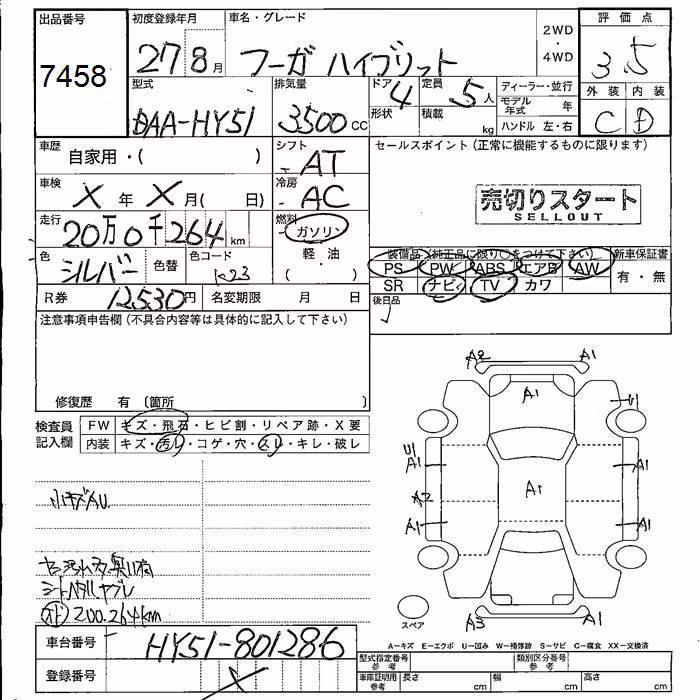 出品番号 初度登録年月 車名・グレード 2WD・4WD 評価点
7458 27 8月 フーガ ハイブリット 3.5
型式 排気量 ドア 4 定員 5人 ディーラー・並行 外装 内装
DAA-HY51 3500cc 形状 積載 kg モデル年式 年 C D
ハンドル 左・右
車歴 自家用・( ) シフト AT セールスポイント(正常に機能するものに限ります)
車検 X年X月( 日) 冷房 AC 売切りスタート
SELLOUT
走行 20万0千264km 燃料 ガソリン
軽・油
( )
色 シルバー 色替 色コード K23
装備品(純正品に限り○をつけて下さい) 新車保証書
PS PW ABS エアB AW 有・無
SR ナビ TV カワ
R券 12530円 名変期限 月 日 後日品
注意事項申告欄(不具合内容等は具体的に記入して下さい)
修復歴 有 (箇所 )
検査員記入欄 FW キズ・飛石・ヒビ割・リペア跡・X要
内装 キズ・汚レ・コゲ・穴・スレ・キレ・破レ
小キズAU
シートペタル ヤブレ
200.264km
A2 A1
A1
U
U1
A1 A1
A1
A2
A1 A1
A3 A1
スペア
A-キズ E-エクボ U-凹み W-補修跡 S-サビ C-腐食 XX-交換済
車台番号 HY51-801286
型式指定番号参考 類別区分番号参考
登録番号 X
車庫証明用参考 長さ cm 幅 cm 高さ cm